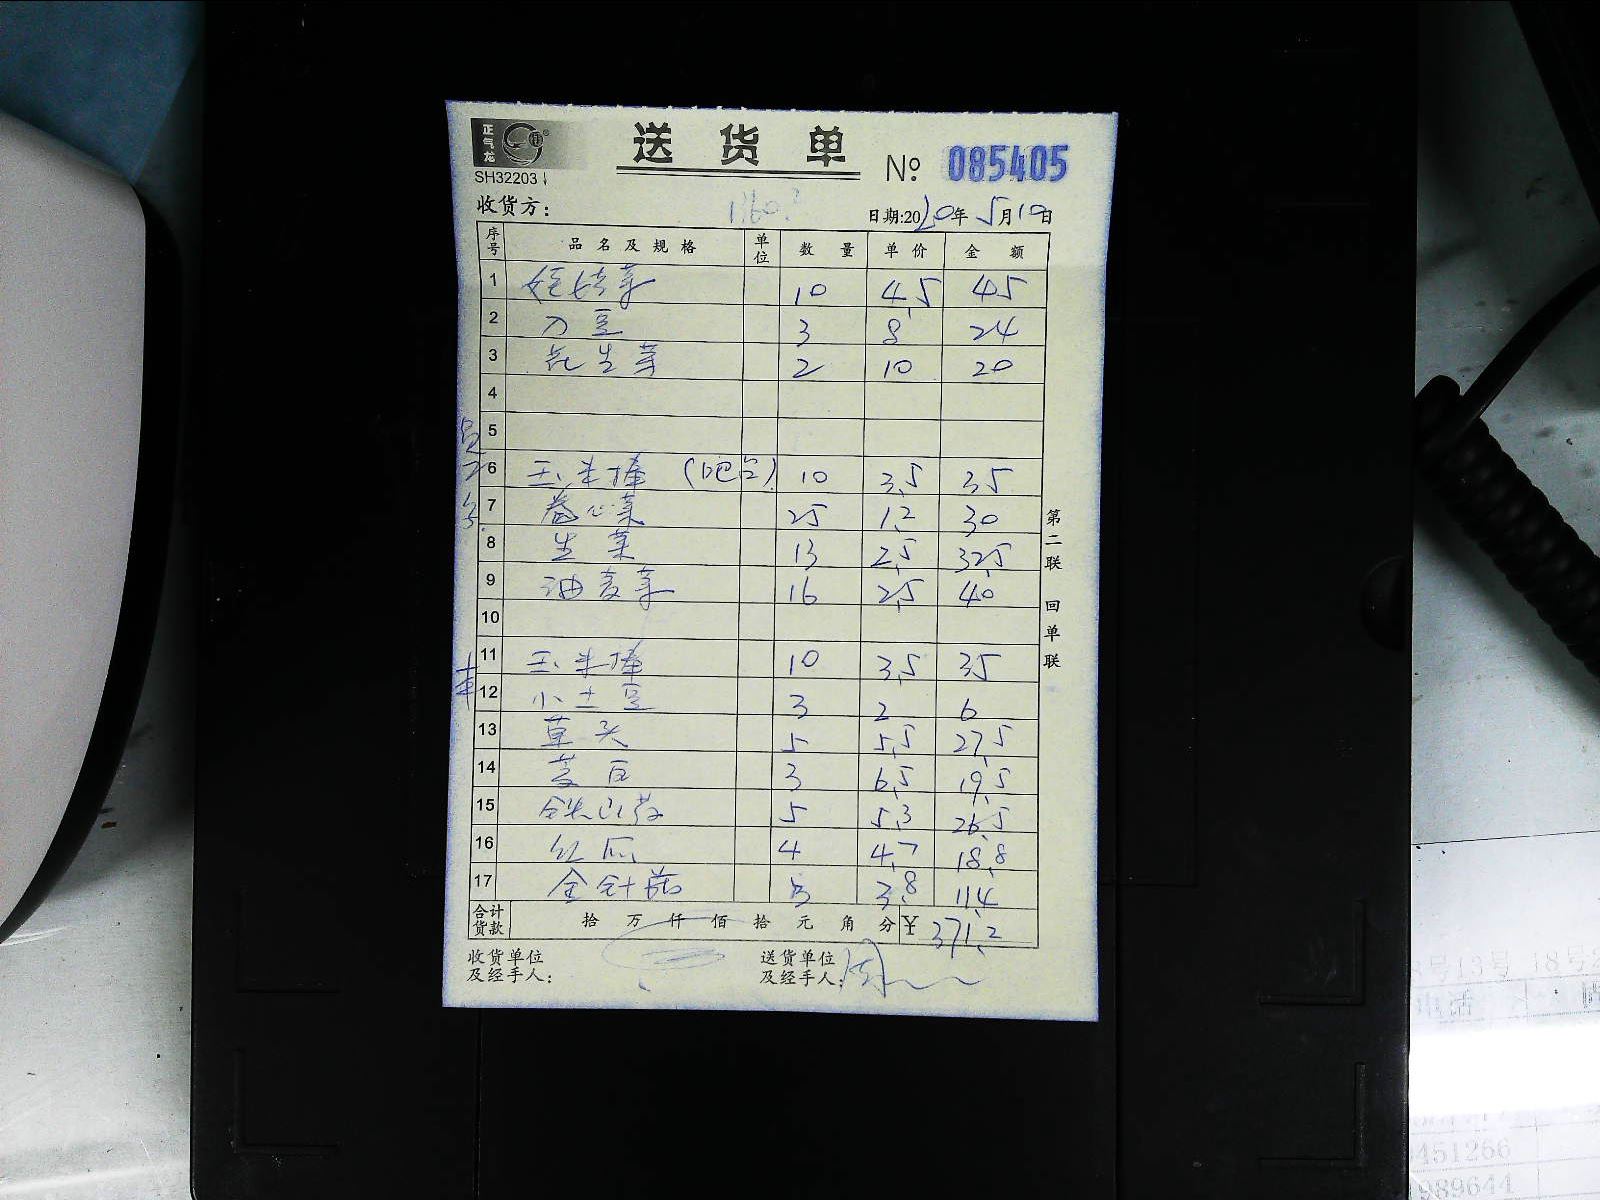 正气龙
SH32203
送货单 № 085405
收货方: 日期:2020年5月10日
序号 品名及规格 单位 数量 单价 金额
1 娃娃菜 10 4.5 45
2 刀豆 3 8 24
3 花生芽 2 10 20
4
5
6 玉米棒 (吧台) 10 3.5 35
7 卷心菜 25 1.2 30
8 生菜 13 2.5 32.5
9 油麦菜 16 2.5 40
10
11 玉米棒 10 3.5 35
12 小土豆 3 2 6
13 草头 5 5.5 27.5
14 3 6.5 19.5
15 铁山药 5 5.3 26.5
16 红瓜 4 4.7 18.8
17 金针菇 3 3.8 11.4
合计货款 拾万仟佰拾元角分 ¥ 371.2
收货单位及经手人: 送货单位及经手人:
第二联 回单联
451266
989644